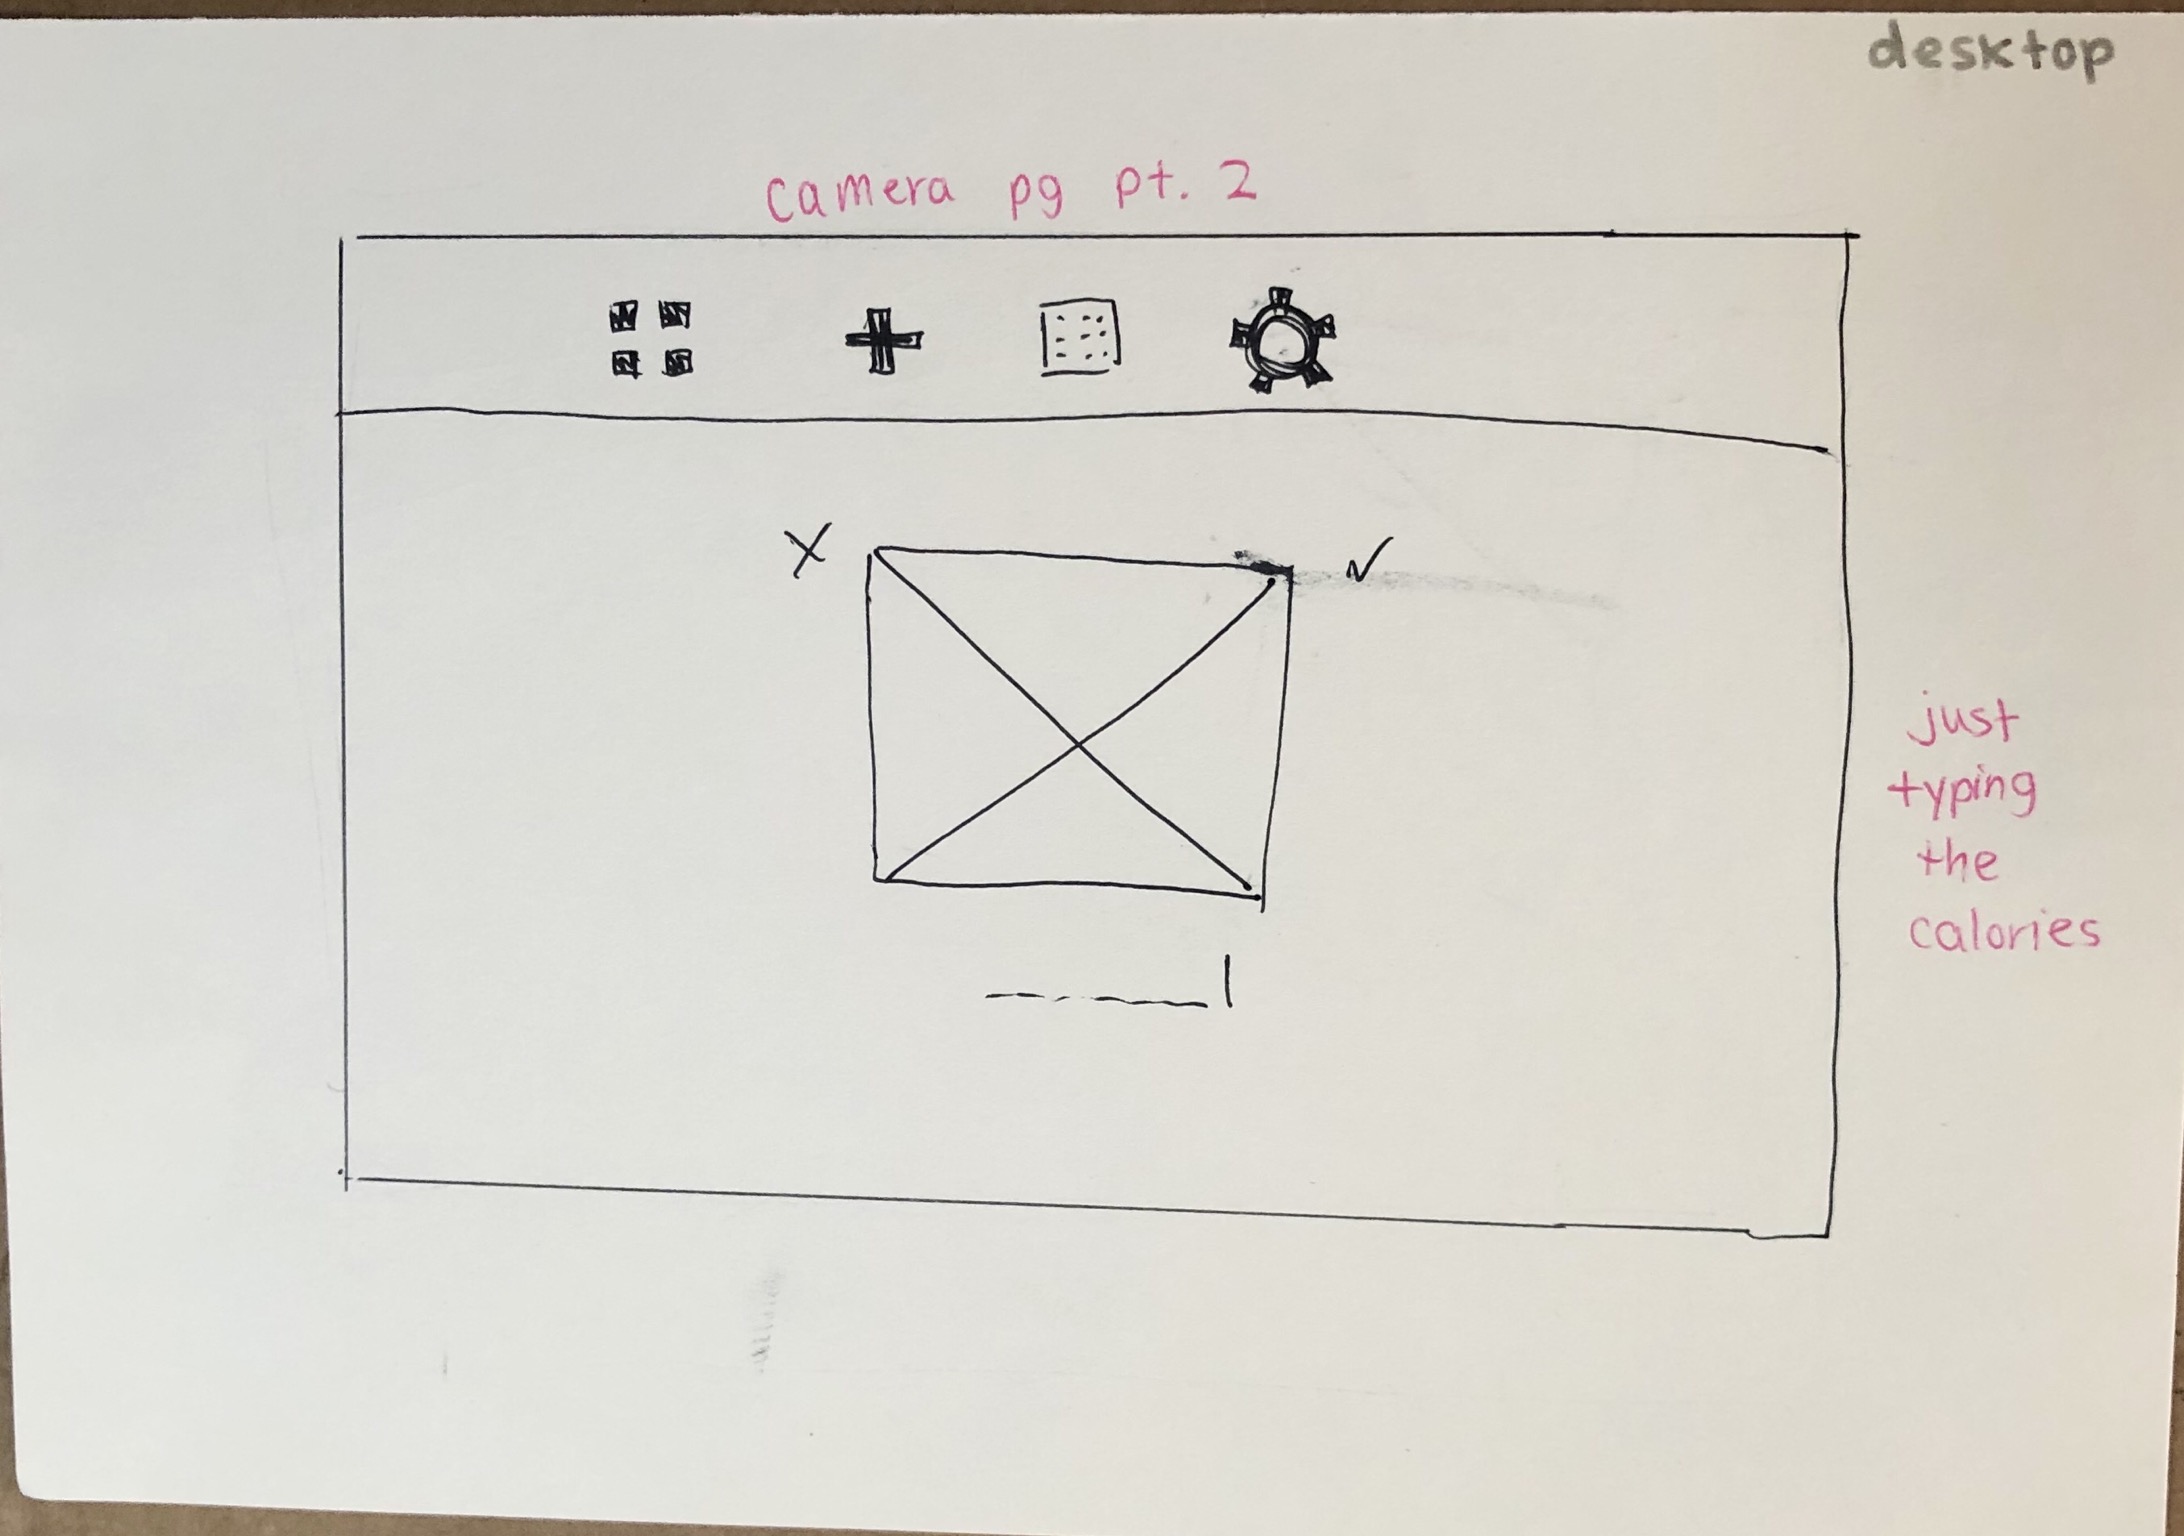 desktop
camera pg pt. 2
just
typing
the
calories